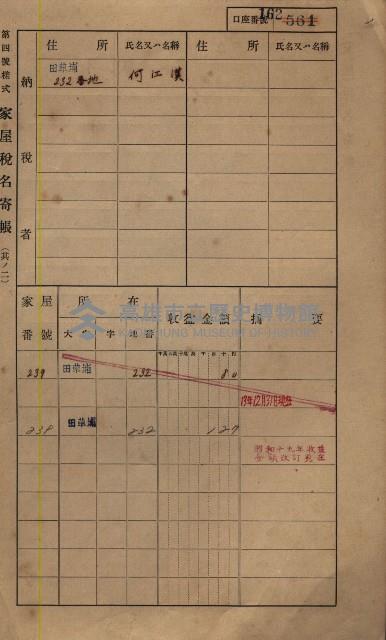 第四號樣式
家屋稅名寄帳
(其ノ二)
口座番號 162 561
住所 氏名又ハ名稱 住所 氏名又ハ名稱
納稅者
田草埔
232番地 何江漢
高雄市立歷史博物館
KAOHSIUNG MUSEUM OF HISTORY
家屋番號 所在 收益金額 摘要
大字 字 地番
239 田草埔 232 80
13年12月31日現在
239 田草埔 232 127
昭和十九年收益
金額改訂現在